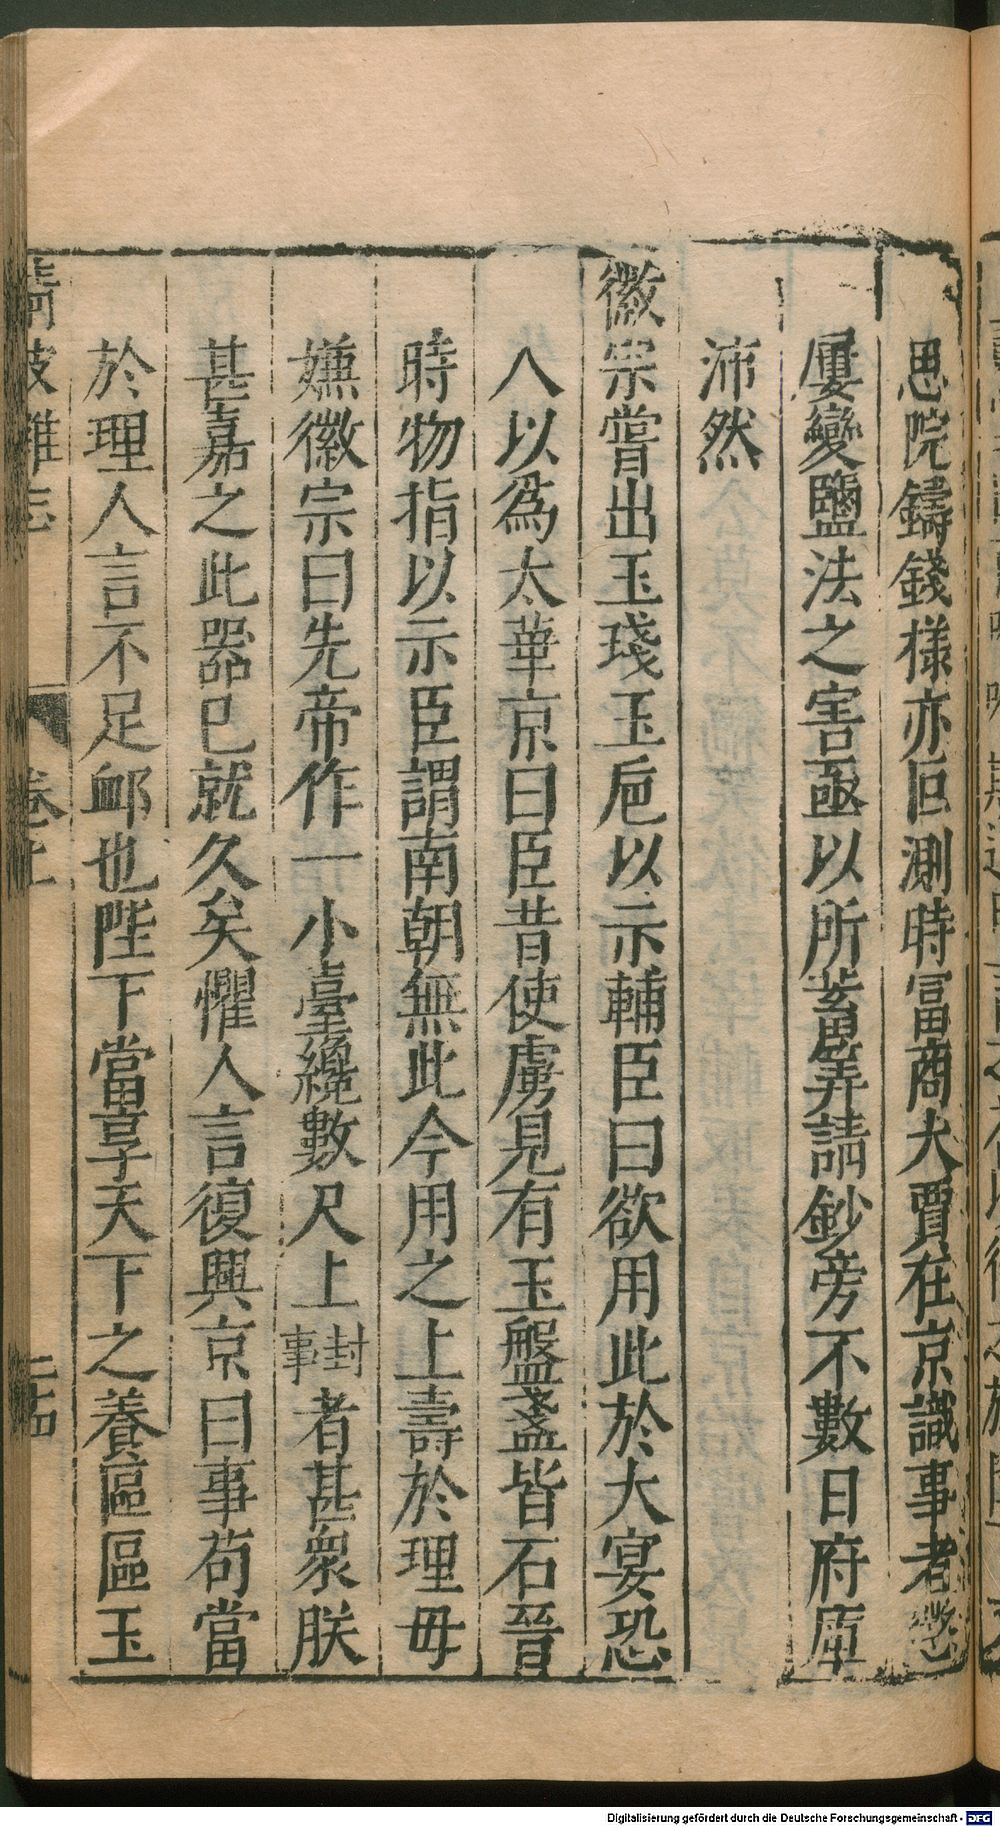 思院鑄錢樣亦叵測時富商大賈在京識事者懲
屢變鹽法之害亟以所畜算請鈔旁不數日府庫
沛然
徽宗嘗出玉琖玉巵以示輔臣曰欲用此於大宴恐
人以為太華京曰臣昔使虜見有玉盤盞皆石晉
時物指以示臣謂南朝無此今用之上壽於理毋
嫌徽宗曰先帝作一小臺纔數尺上封事者甚衆朕
甚嘉之此器已就久矣懼人言復興京曰事苟當
於理人言不足卹也陛下當享天下之養區區玉
清波雜志
卷上
二十四
Digitalisierung gefördert durch die Deutsche Forschungsgemeinschaft - DFG